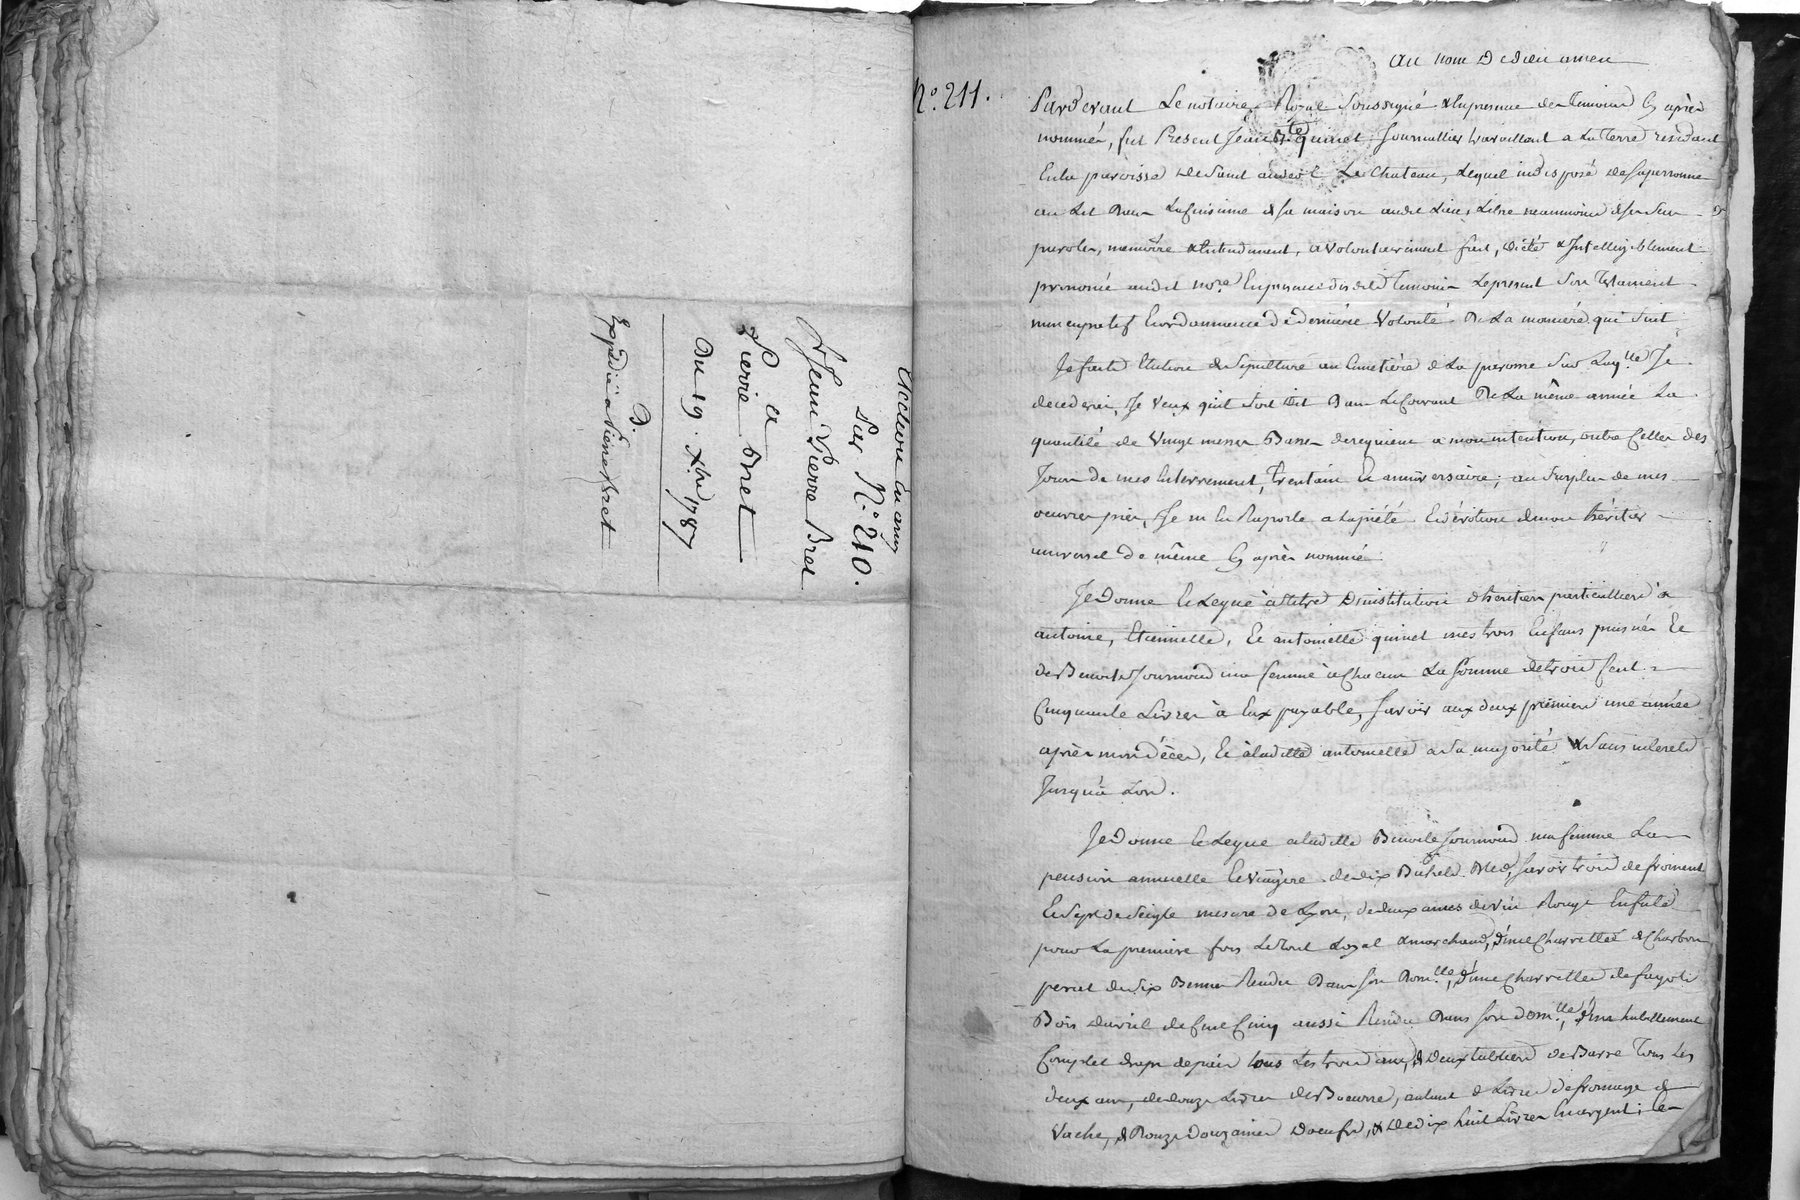 par N.° 210.
Jean Pierre Bret
a
Pierre Bret
Du 19. Xbre 1787
Expédié a Pierre Bret
N.° 211.
au nom De dieu amen
Pardevant Le notaire Royal soussigné & En presence des Temoins Cy après
nommés, fut Present Jean Bte quinet Journallier travaillant a La Terre resident
En la paroisse De Saint andeol Le Chateau, Lequel indisposé de sa personne
au Lit Dans La Cuisine de sa maison audit Lieu, Libre neanmoins de ses sens
parole, memoire & Entendement, a volontairement fait, dicté & Intelligiblement
prononcé audit nore En presence desdits Temoins Le present son Testament
nuncupatif & ordonnance De derniére Volonté De La maniére qui suit
Je fais Election de sepulture au Cimetiére de La paroisse sur Laqlle Je
decederai, Je veux qu'il soit Dit Dans Le Courant De La même année La
quantité de Vingt messes Basses de requiem a mon intention, outre Celles des
Jours de mes Enterrement, Trentain Et anniversaire; au surplus de mes
oeuvres pies, Je m'En Raporte a La piété & dévotion de mon héritier
universel De même Cy après nommé.
Je Donne & Legue à titre D'institution d'heritiers particuliers à
antoine, Etiennette, Et antoinette quinet mes trois Enfans puisnés Et
de Benoite Journoud ma femme à Chacun La Somme de trois Cent
Cinquante Livres à Eux payable, savoir aux deux premiers une année
après mon décès, Et à laditte antoinette a sa majorité & sans interets
Jusqu'à Lors.
Je Donne & Legue a laditte Benoite Journoud ma femme La
pension annuelle & viagere de dix Bichets Bled, savoir trois de froment
Et sept de seigle mesure de Lyon, de deux anées de vin Rouge Enfuté
pour La premiére fois Le tout Loyal & marchand, d'une Charrettée de Charbon
perat de six Bennes Rendu Dans son Domlle, d'une Charrettée de fagots
Bois aussi Rendu Dans son domlle, d'un habillement
Complet drap de païs tous Les trois ans, de deux tabliers de Tous Les
deux ans, de douze Livres de Beurre, autant de Livres de fromage de
Vache, de Douze Douzaines D'oeufs, & De dix huit Livres En argent; Les